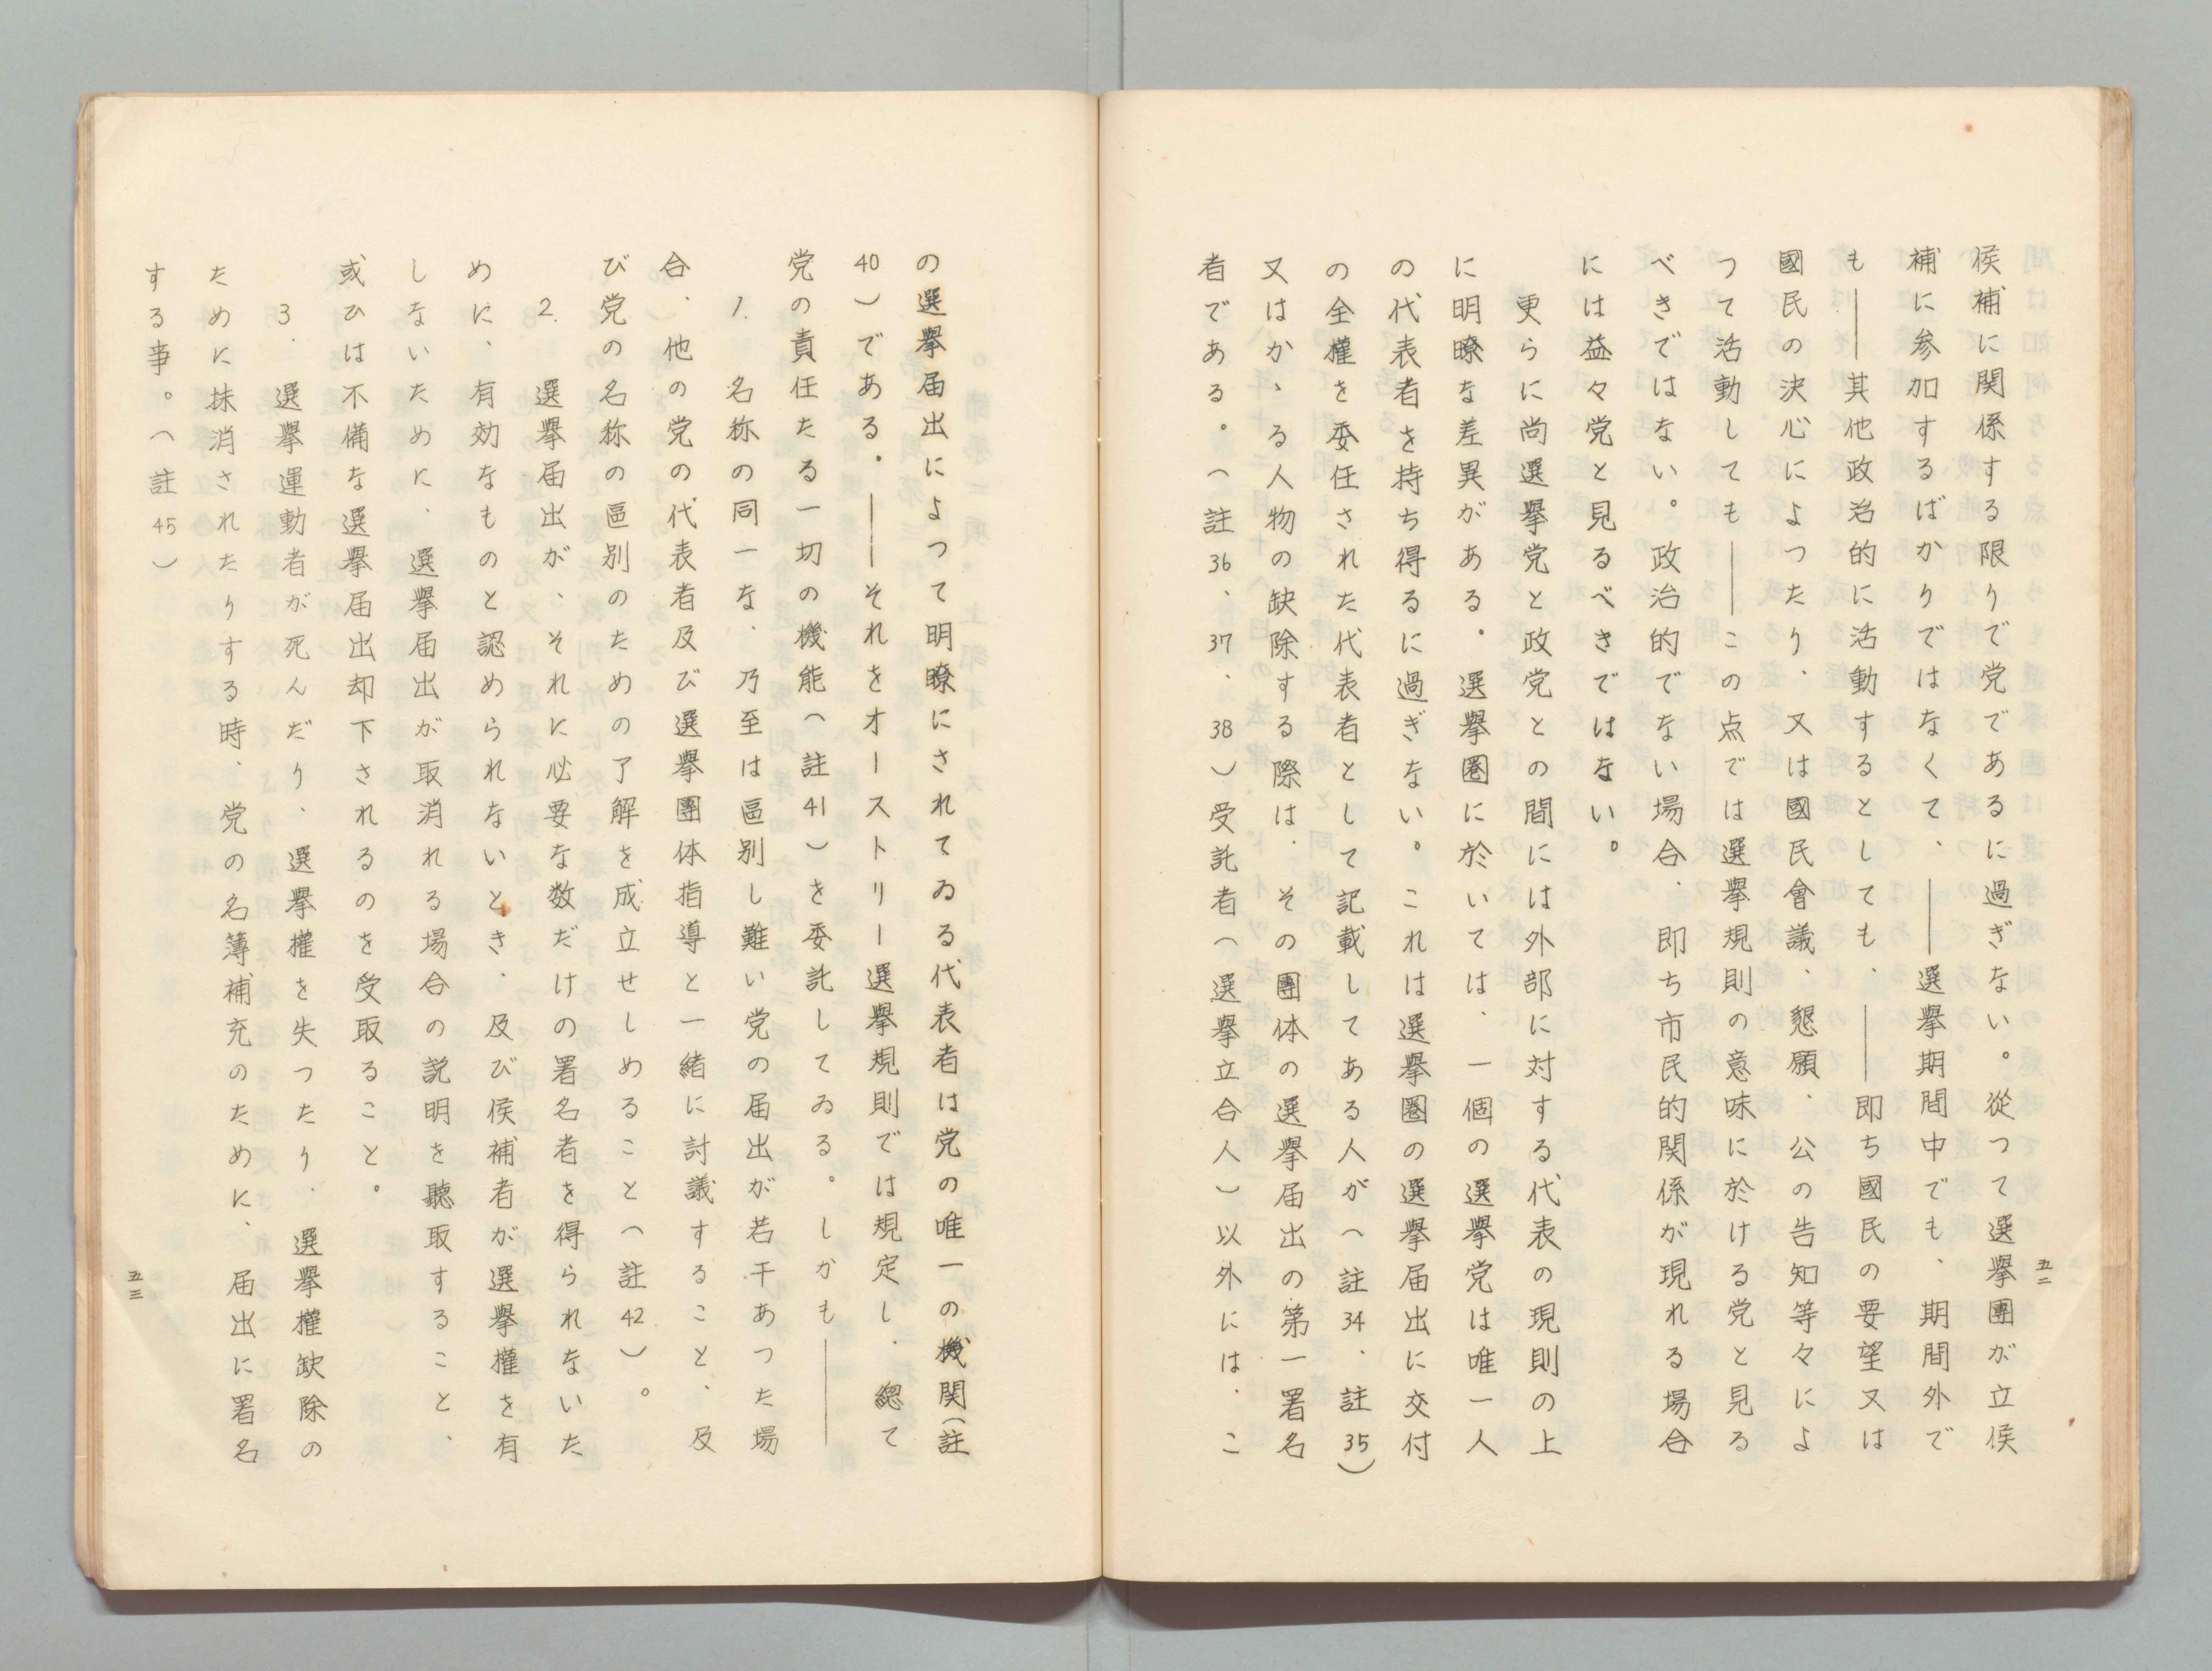 侯補に関係する限りで党であるに過ぎない。從つて選擧團が立侯
補に参加するばかりではなくて、――選擧期間中でも、期間外で
も――其他政治的に活動するとしても、――即ち國民の要望又は
國民の決心によつたり、又は國民會議、懇願、公の告知等々によ
つて活動しても――この点では選擧規則の意味に於ける党と見る
べきではない。政治的でない場合、即ち市民的関係が現れる場合
には益々党と見るべきではない。
更らに尚選擧党と政党との間には外部に対する代表の現則の上
に明瞭な差異がある。選擧圏に於いては、一個の選擧党は唯一人
の代表者を持ち得るに過ぎない。これは選擧圏の選擧届出に交付
の全權を委任された代表者として記載してある人が(註34、註35)
又はかゝる人物の缺除する際は、その團体の選擧届出の第一署名
者である。(註36、37、38)受託者(選擧立合人)以外には、こ
五二
の選擧届出によつて明瞭にされてゐる代表者は党の唯一の機関(註
40)である。――それをオーストリー選擧規則では規定し、總て
党の責任たる一切の機能(註41)を委託してゐる。しかも――
1. 名称の同一な、乃至は區別し難い党の届出が若干あつた場
合、他の党の代表者及び選擧團体指導と一緒に討議すること、及
び党の名称の區別のための了解を成立せしめること(註42)。
2. 選擧届出が、それに必要な数だけの署名者を得られないた
めに、有効なものと認められないとき、及び侯補者が選擧權を有
しないために、選擧届出が取消れる場合の説明を聽取すること、
或ひは不備な選擧届出却下されるのを受取ること。
3. 選擧運動者が死んだり、選擧權を失つたり、選擧權缺除の
ために抹消されたりする時、党の名簿補充のために、届出に署名
する事。(註45)
五三